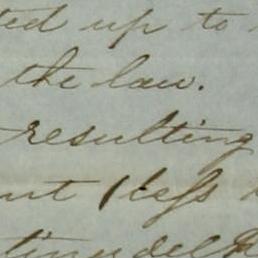 ted up to
the law.
resulting
ent (less